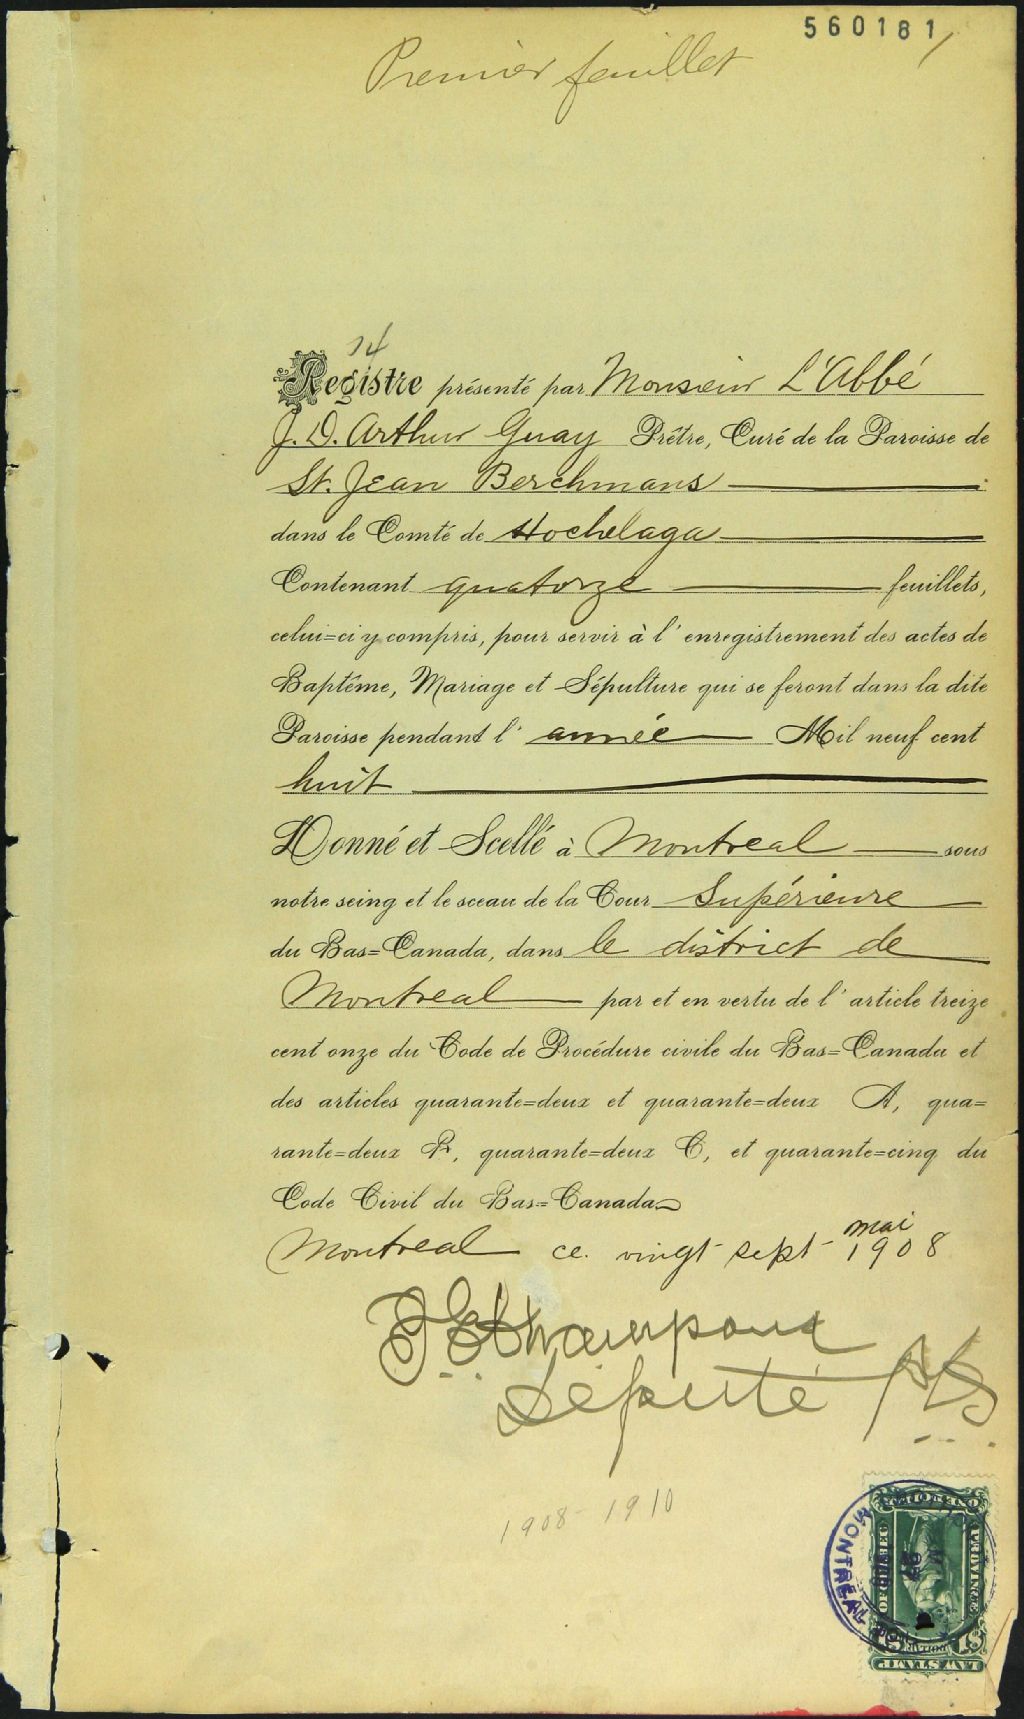 560181
Premier feuillet
14
Registre présenté par Monsieur L'Abbé
J. D. Arthur Guay Prêtre, Curé de la Paroisse de
St. Jean Berchmans
dans le Comté de Hochelaga
Contenant quatorze feuillets,
celui=ci y compris, pour servir à l'enregistrement des actes de
Baptême, Mariage et Sépulture qui se feront dans la dite
Paroisse pendant l'année Mil neuf cent
huit
Donné et Scellé à Montreal sous
notre seing et le sceau de la Cour Supérieure
du Bas=Canada, dans le district de
Montreal par et en vertu de l'article treize
cent onze du Code de Procédure civile du Bas=Canada et
des articles quarante=deux et quarante=deux A, qua=
rante=deux B, quarante=deux C, et quarante=cinq du
Code Civil du Bas=Canada
Montreal ce vingt sept mai 1908
Député
1908-1910
PROVINCE
OF QUEBEC
MONTREAL
$1
LAW STAMP